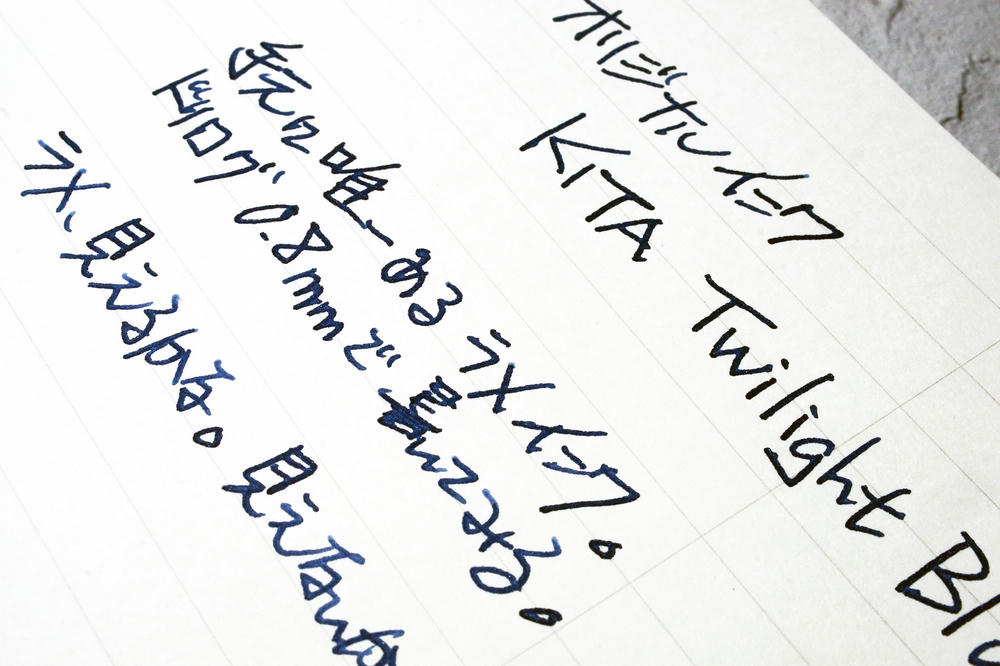 オリジナルインク
KITA Twilight Bl
手元に唯一あるラメインク。
0.8mmで書いてみる。
ラメ、見えるかな。見えないか